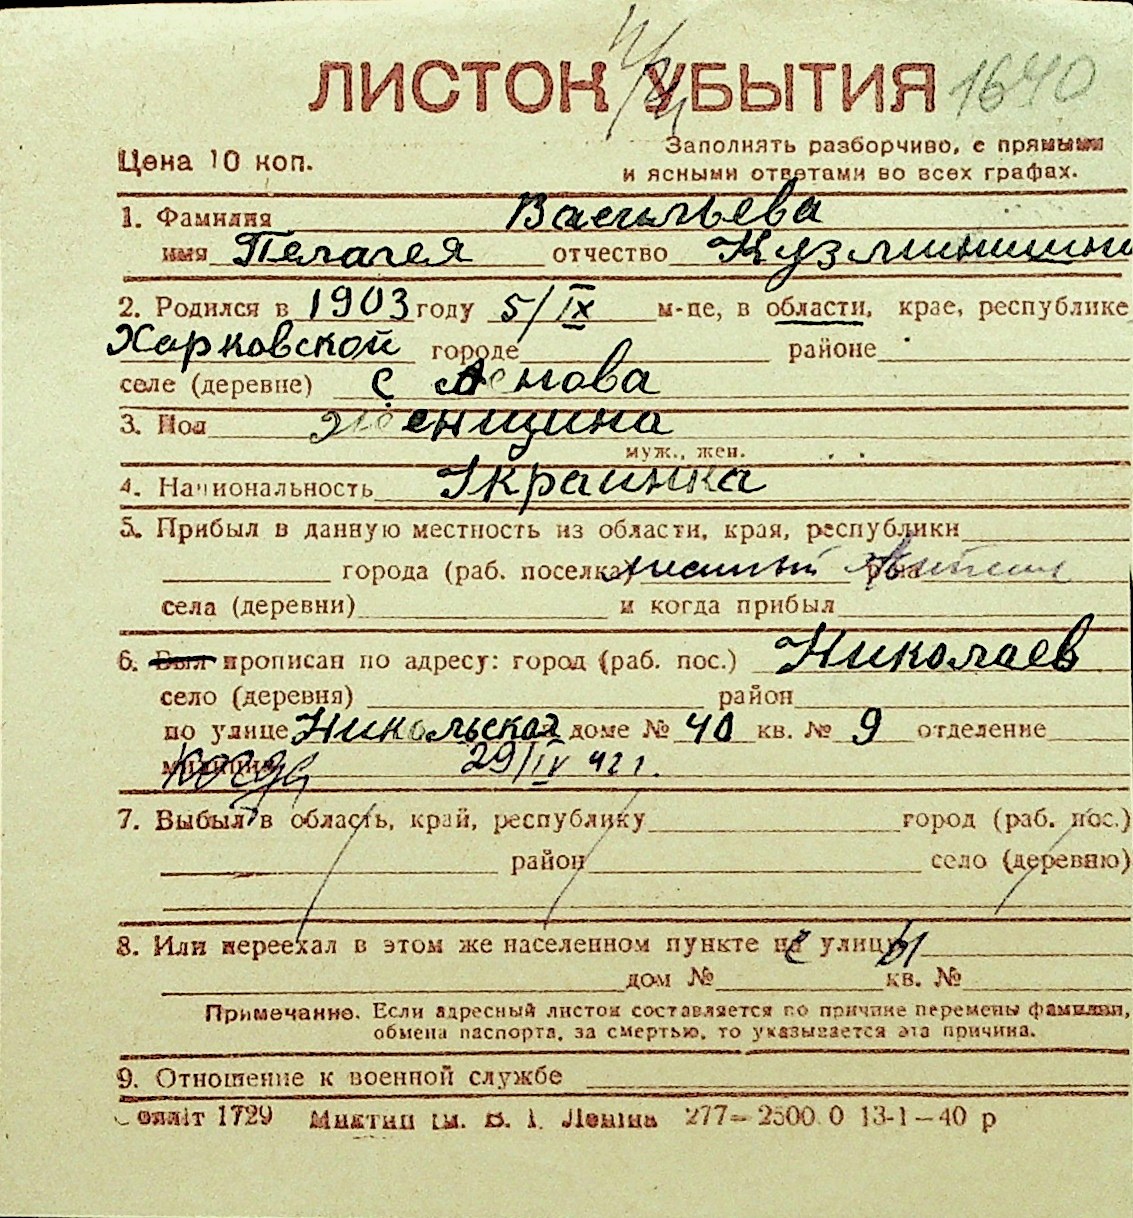 ЛИСТОК УБЫТИЯ 1640
Цена 10 коп.
Заполнять разборчиво, с прямыми
и ясными ответами во всех графах.
1. Фамилия Васильева
имя Пелагея отчество
2. Родился в 1903 году 5/IX м-це, в области, крае, республике
Харковской городе районе
селе (деревне) с
3. Пол Женщина
муж., жен.
4. Национальность Украинка
5. Прибыл в данную местность из области, края, республики
города (раб. поселка)
села (деревни) и когда прибыл
6. Был прописан по адресу: город (раб. пос.) Николаев
село (деревня) район
по улице Никольская доме № 40 кв. № 9 отделение
милиции когда 29/IV 42 г.
7. Выбыл в область, край, республику город (раб. пос.)
район село (деревню)
8. Или переехал в этом же населенном пункте на улицу
дом № кв. №
Примечание. Если адресный листок составляется по причине перемены фамилии,
обмена паспорта, за смертью, то указывается эта причина.
9. Отношение к военной службе
1729 277—2500 0 13-1—40 р